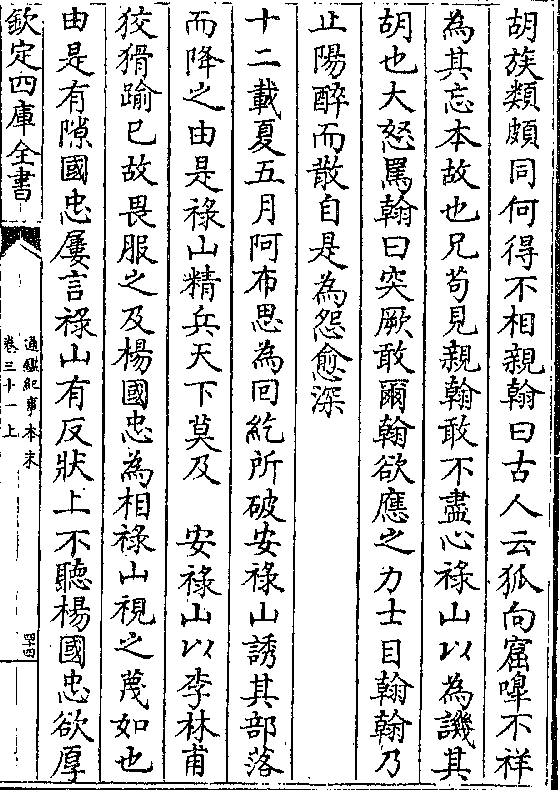 胡族類頗同何得不相親翰曰古人云狐向窟嘷不祥
為其忘本故也兄苟見親翰敢不盡心祿山以為譏其
胡也大怒罵翰曰突厥敢爾翰欲應之力士目翰翰乃
止陽醉而散自是為怨愈深
十二載夏五月阿布思為回紇所破安祿山誘其部落
而降之由是祿山精兵天下莫及　安祿山以李林甫
狡猾踰已故畏服之及楊國忠為相祿山視之蔑如也
由是有隙國忠屢言祿山有反狀上不聽楊國忠欲厚
欽定四庫全書
通鑑紀事本末
卷三十一上
四